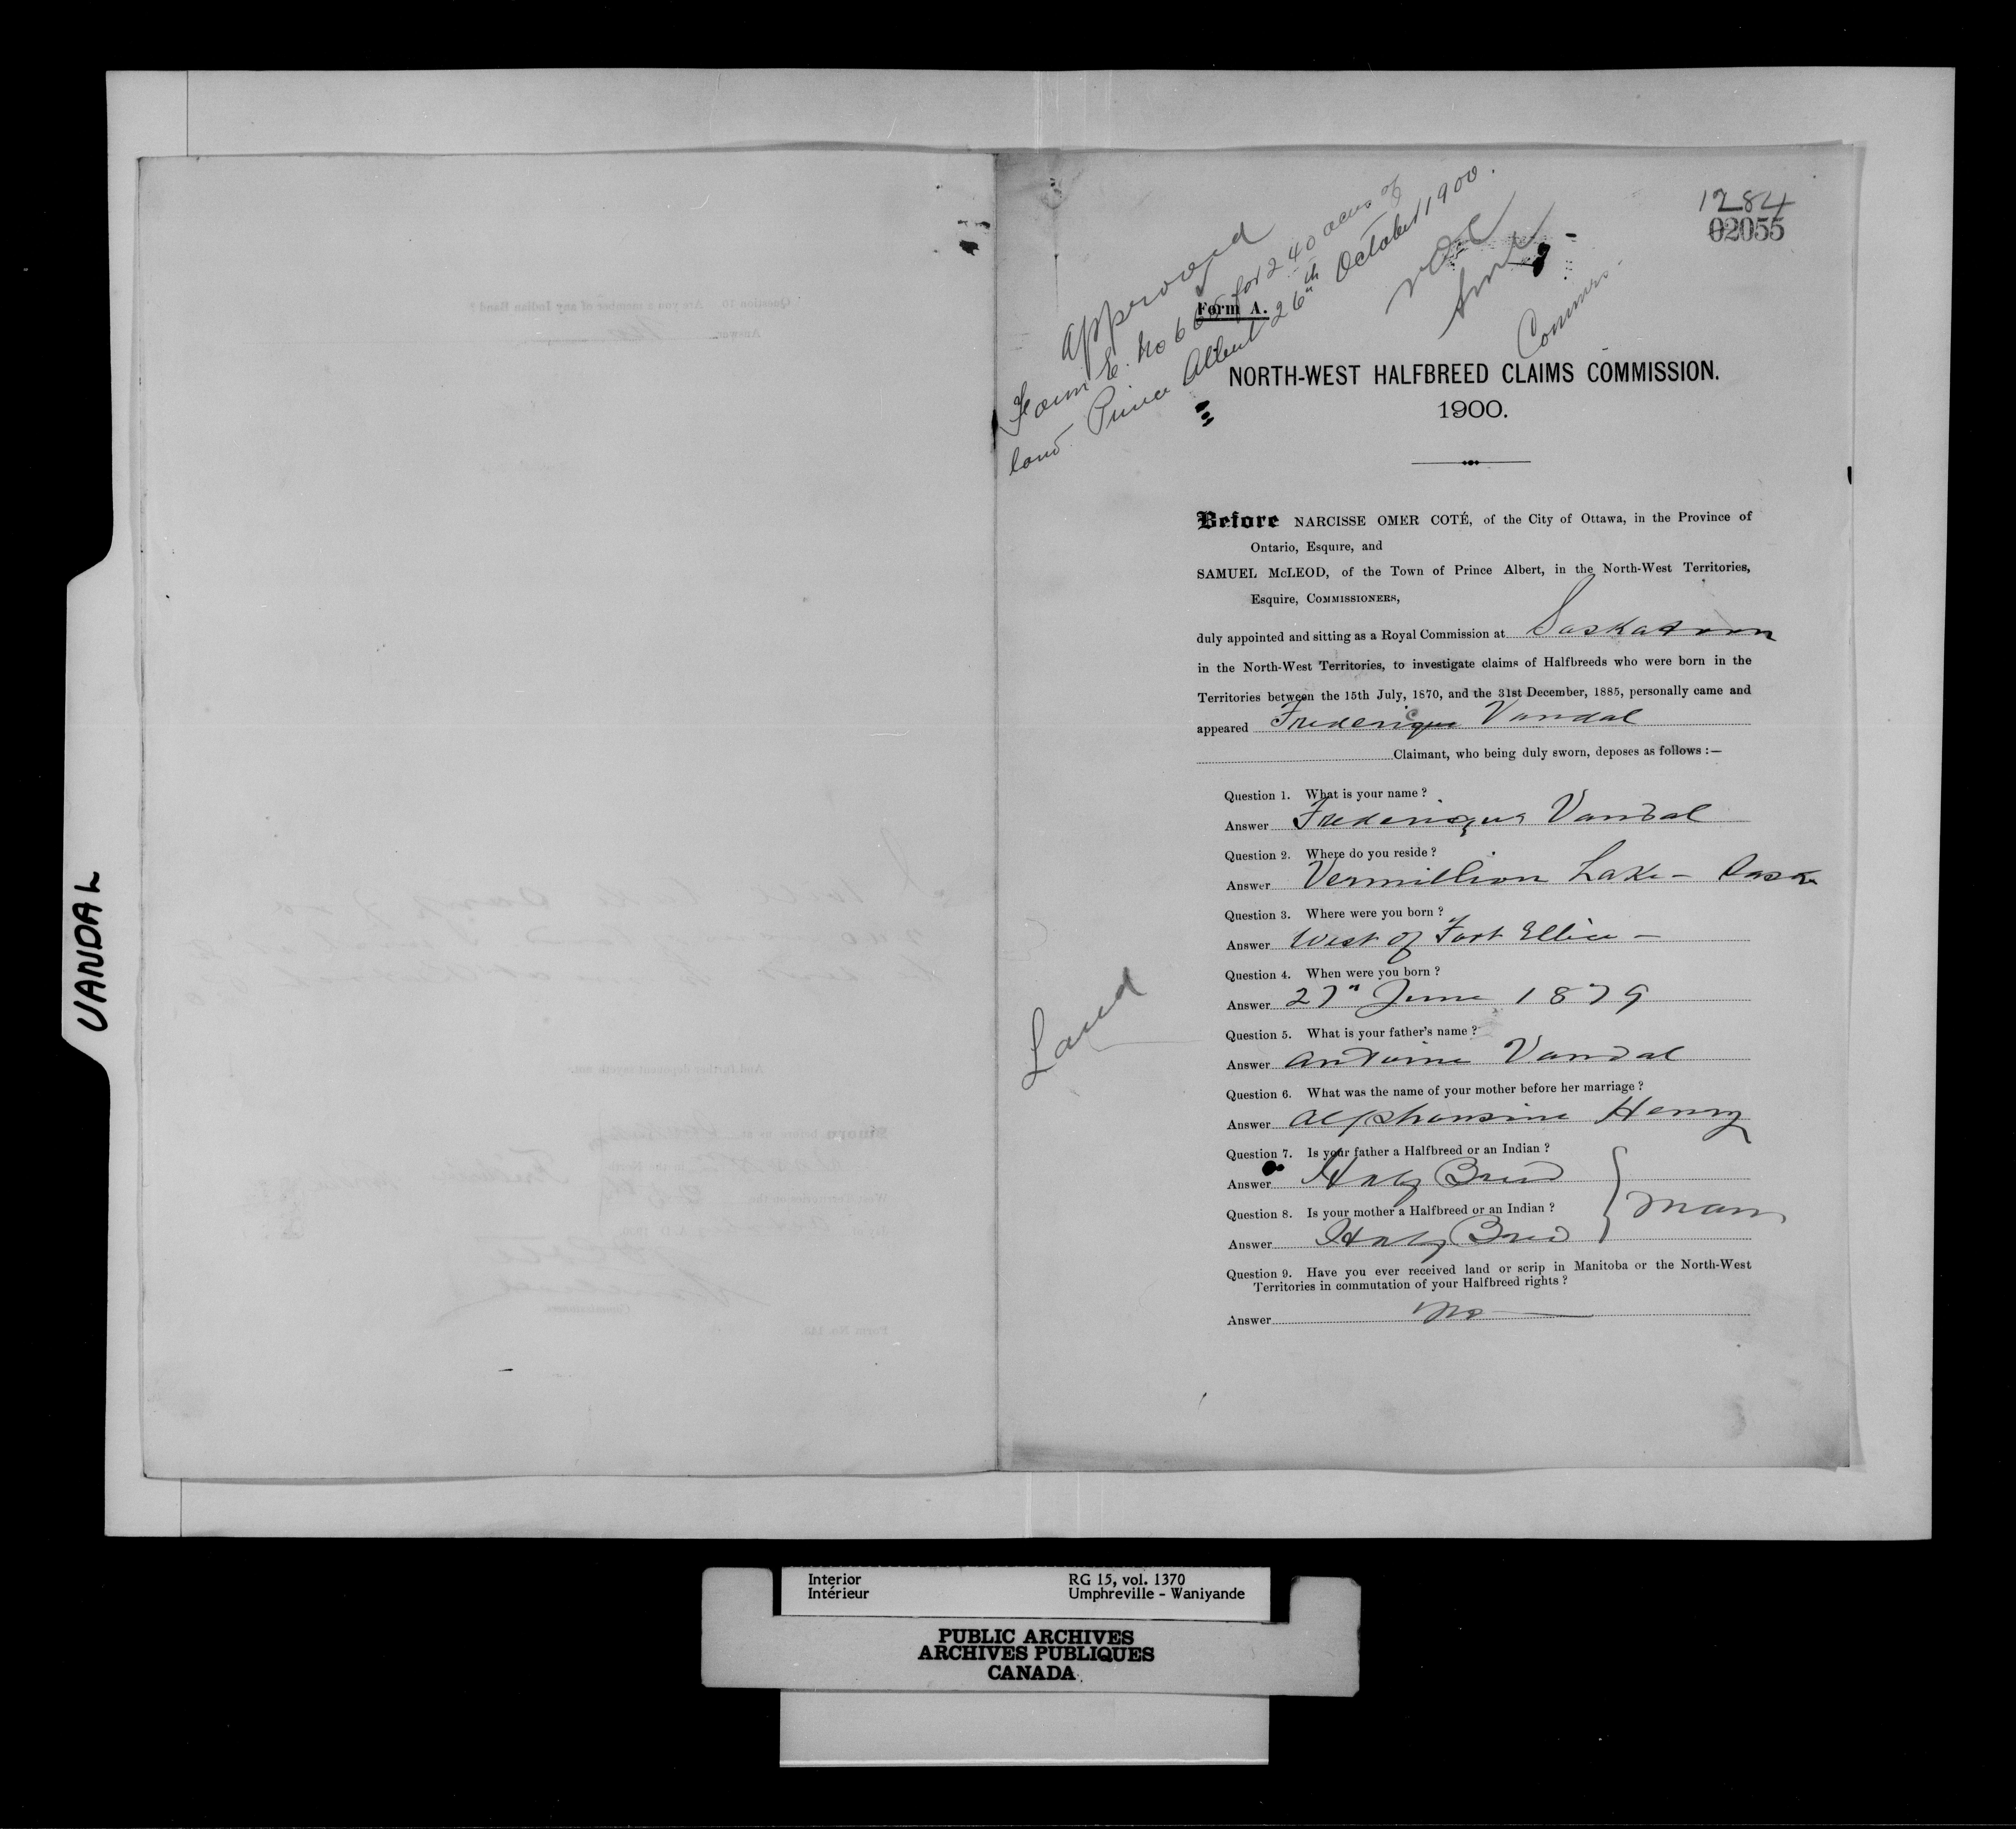 VANDAL
1284
02055
approved
Form E. No 6 for 240 acres of
land. Prince Albert 26th October 1900.
NOC
Commrs.
Form A.
NORTH-WEST HALFBREED CLAIMS COMMISSION.
1900.
Before NARCISSE OMER COTÉ, of the City of Ottawa, in the Province of
Ontario, Esquire, and
SAMUEL McLEOD, of the Town of Prince Albert, in the North-West Territories,
Esquire, COMMISSIONERS,
duly appointed and sitting as a Royal Commission at Saskatoon
in the North-West Territories, to investigate claims of Halfbreeds who were born in the
Territories between the 15th July, 1870, and the 31st December, 1885, personally came and
appeared Frederique Vandal
Claimant, who being duly sworn, deposes as follows :—
Question 1. What is your name ?
Answer Frederique Vandal
Question 2. Where do you reside ?
Answer Vermillion Lake - Sask
Question 3. Where were you born ?
Answer West of Fort Ellice -
Question 4. When were you born ?
Answer 27" June 1879
Question 5. What is your father's name ?
Answer Antoine Vandal
Question 6. What was the name of your mother before her marriage ?
Answer Alphonsine Henry
Land
Question 7. Is your father a Halfbreed or an Indian ?
Answer Half Breed
Question 8. Is your mother a Halfbreed or an Indian ?
Answer Half Breed
} Man
Question 9. Have you ever received land or scrip in Manitoba or the North-West
Territories in commutation of your Halfbreed rights ?
Answer No
Interior
Intérieur
RG 15, vol. 1370
Umphreville - Waniyande
PUBLIC ARCHIVES
ARCHIVES PUBLIQUES
CANADA